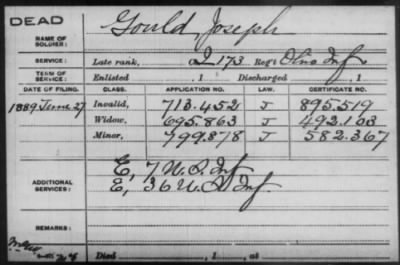 DEAD
NAME OF SOLDIER: Gould, Joseph
SERVICE: Late rank, 173 Reg't Ohio Inf
TERM OF SERVICE: Enlisted , 1 Discharged , 1
DATE OF FILING. CLASS. APPLICATION NO. LAW. CERTIFICATE NO.
1889 June 27 Invalid, 713.452 J 895.519
Widow, 695.863 J 492.108
Minor, 799.878 J 582.367
ADDITIONAL SERVICES: E, 7 U.S. Inf
E, 36 U.S. Inf.
REMARKS:
Died , 1 , at